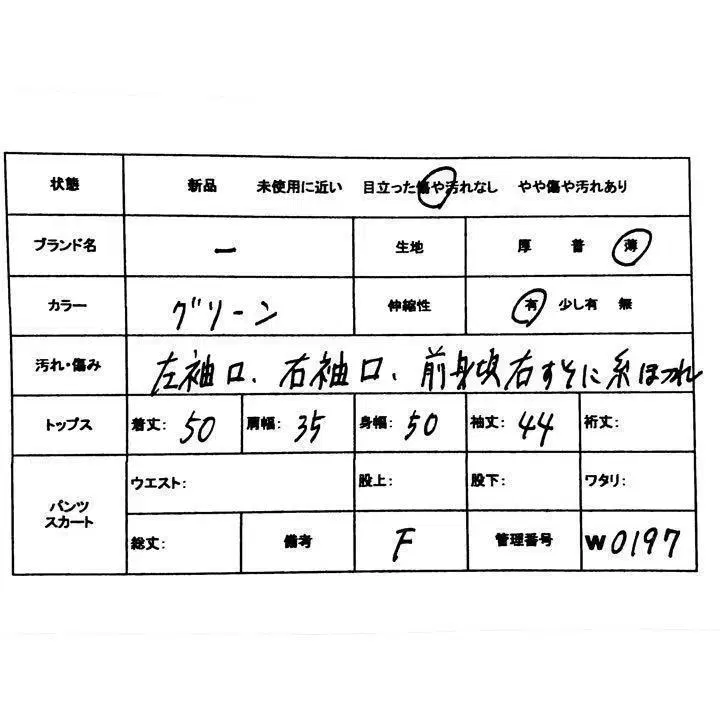 状態 新品 未使用に近い 目立った傷や汚れなし やや傷や汚れあり
ブランド名 ー 生地 厚 普 薄
カラー グリーン 伸縮性 有 少し有 無
汚れ・傷み 左袖口、右袖口、前身頃右すそに糸ほつれ
トップス 着丈: 50 肩幅: 35 身幅: 50 袖丈: 44 裄丈:
パンツ スカート ウエスト: 股上: 股下: ワタリ:
総丈: 備考 F 管理番号 W0197